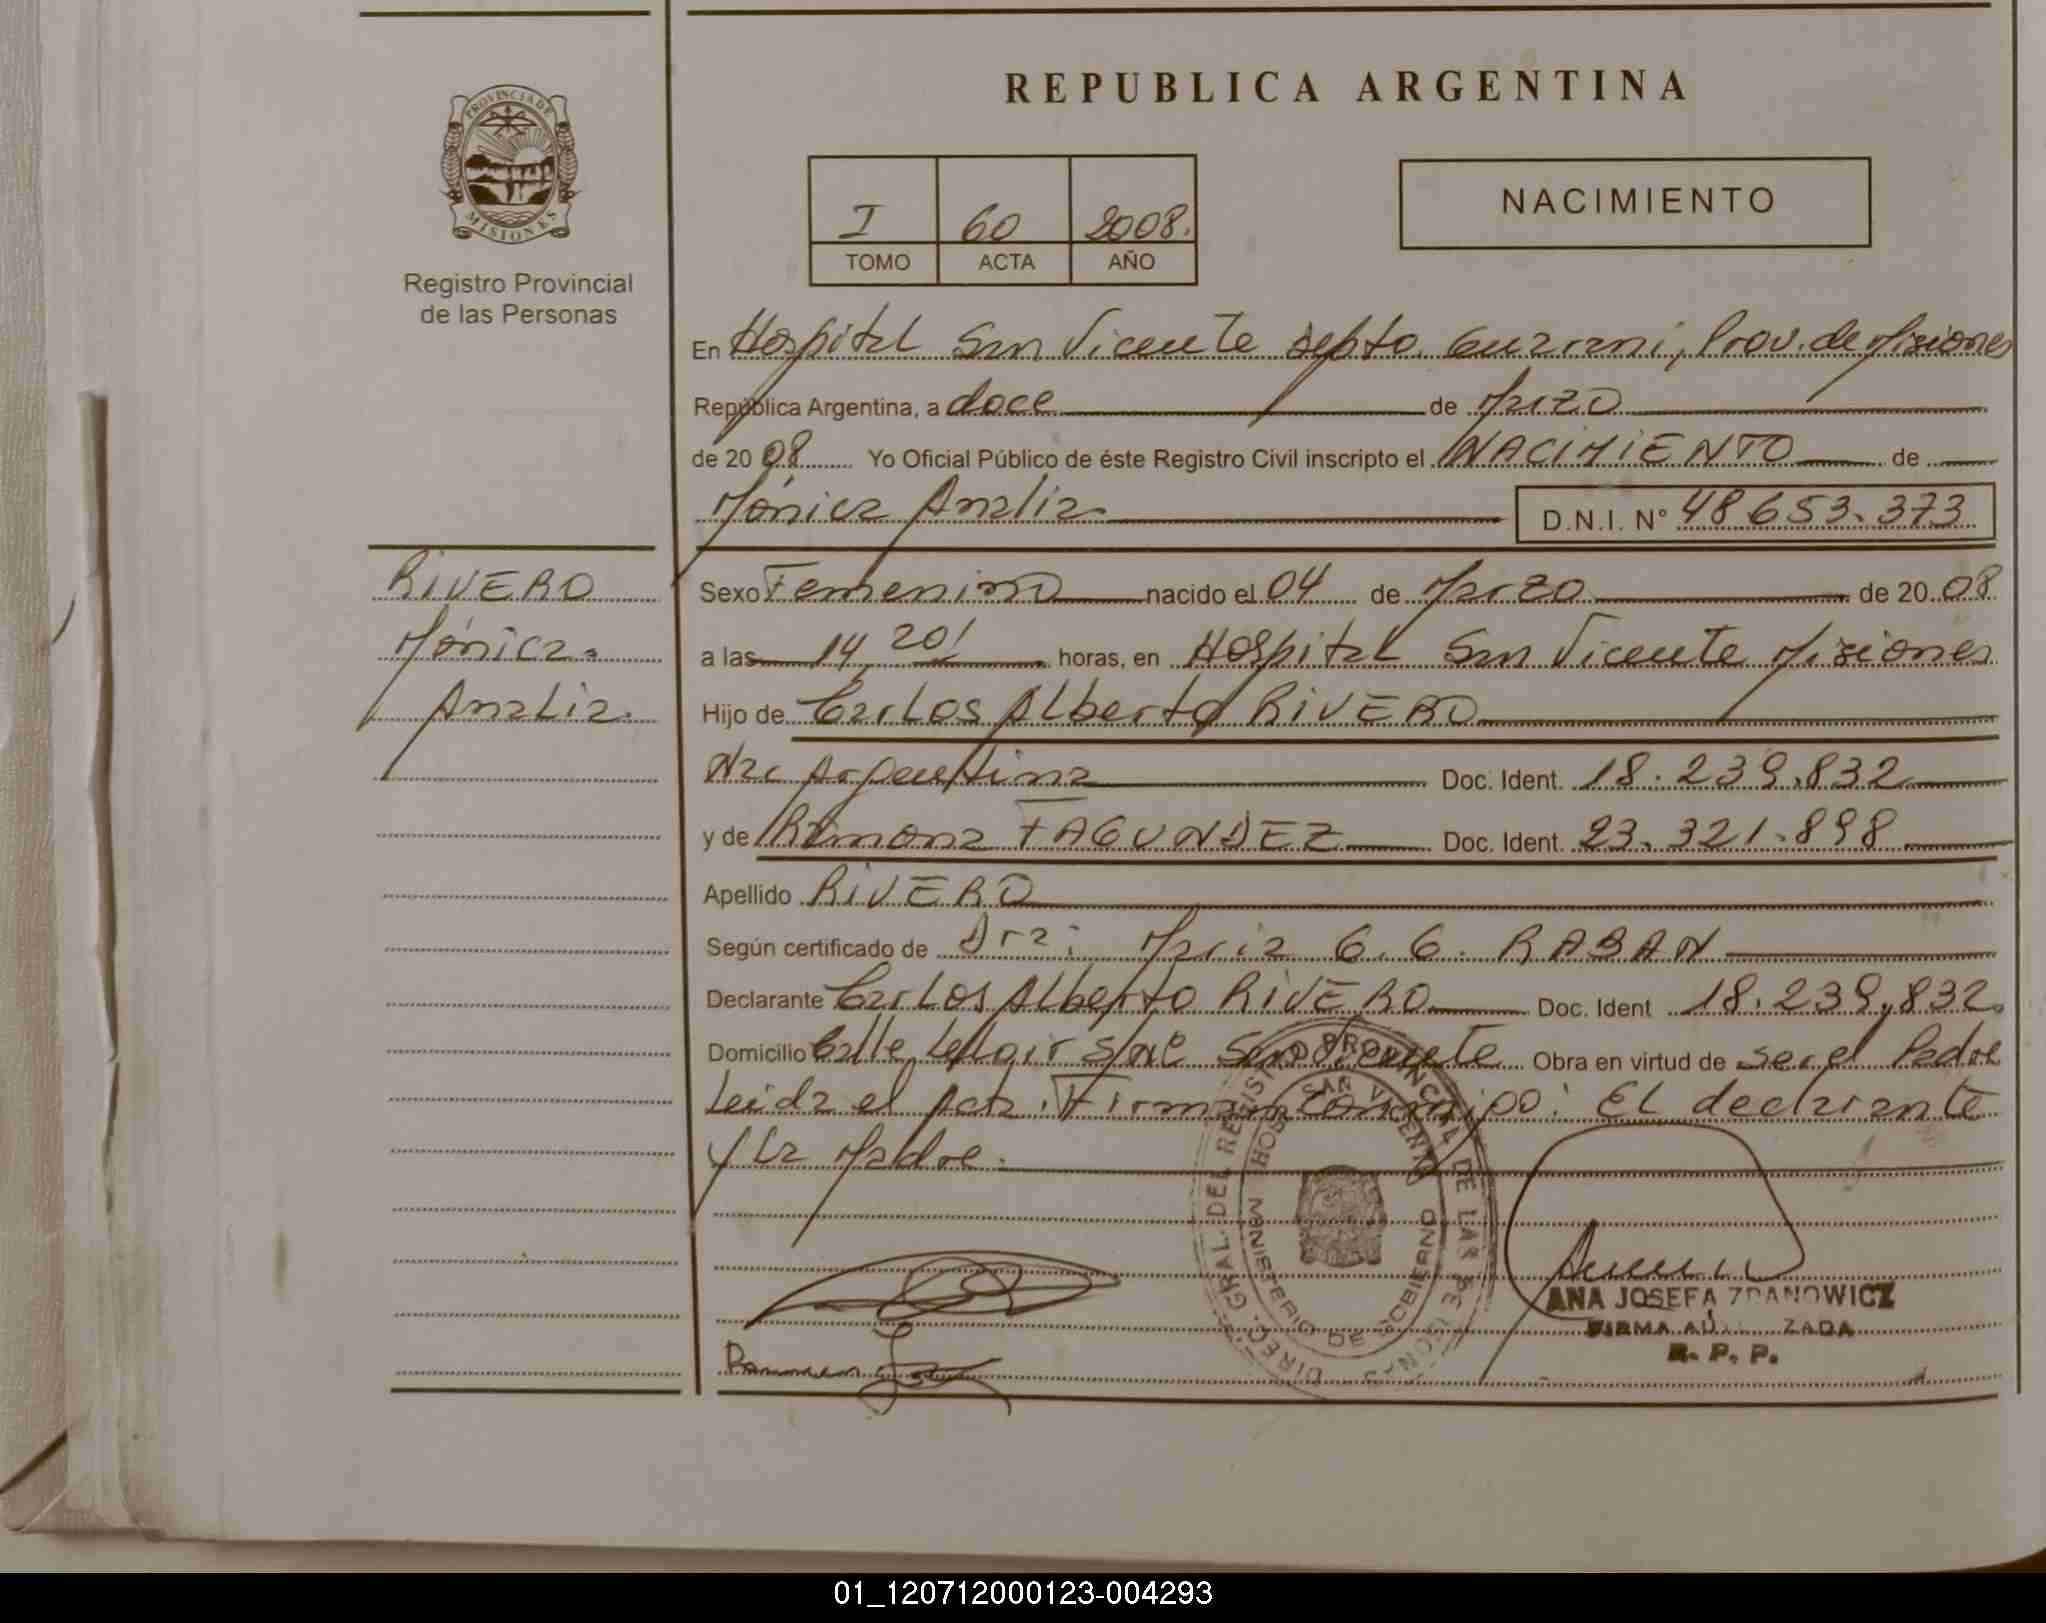 REPUBLICA ARGENTINA
PROVINCIA DE MISIONES
Registro Provincial
de las Personas
I 60 2008.
TOMO ACTA AÑO
NACIMIENTO
En Hospital San Vicente Depto. Guarani, Prov. de Misiones
República Argentina, a doce de Marzo
de 2008 Yo Oficial Público de éste Registro Civil inscripto el NACIMIENTO de
Mónica Analia D.N.I. N° 48653.373
RIVERO
Mónica
Analia.
Sexo Femenino nacido el 04 de Marzo de 2008
a las 14,20' horas, en Hospital San Vicente Misiones
Hijo de Carlos Alberto RIVERO
Nac Argentina Doc. Ident. 18.239.832
y de Ramona FAGUNDEZ Doc. Ident. 23.321.898
Apellido RIVERO
Según certificado de Dra: Maria G. G. RABAN
Declarante Carlos Alberto RIVERO Doc. Ident 18.239,832
Domicilio Calle Leloir s/nº San Vicente Obra en virtud de ser el Padre
Leida el acta. Firman conmigo: El declarante
y la Madre.
DIREC. GRAL. DEL REGISTRO PROVINCIAL DE LAS PERSONAS
HOSP. SAN VICENTE
MINISTERIO DE GOBIERNO
ANA JOSEFA ZDANOWICZ
FIRMA AUTORIZADA
R. P. P.
01_120712000123-004293